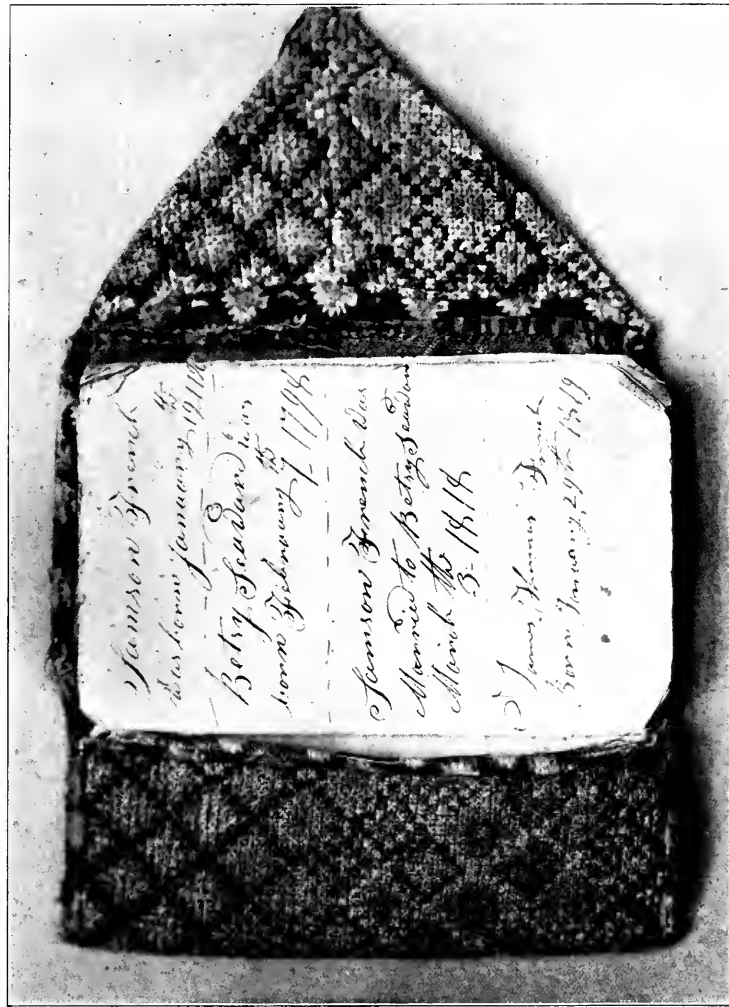 Samson French
Was born January 12th
Betsy Seavdun was
born February 7th 1798
Samson French was
Married to Betsy Seavdun
March the
3-1818
James Thomas French
Born January 29th 1819